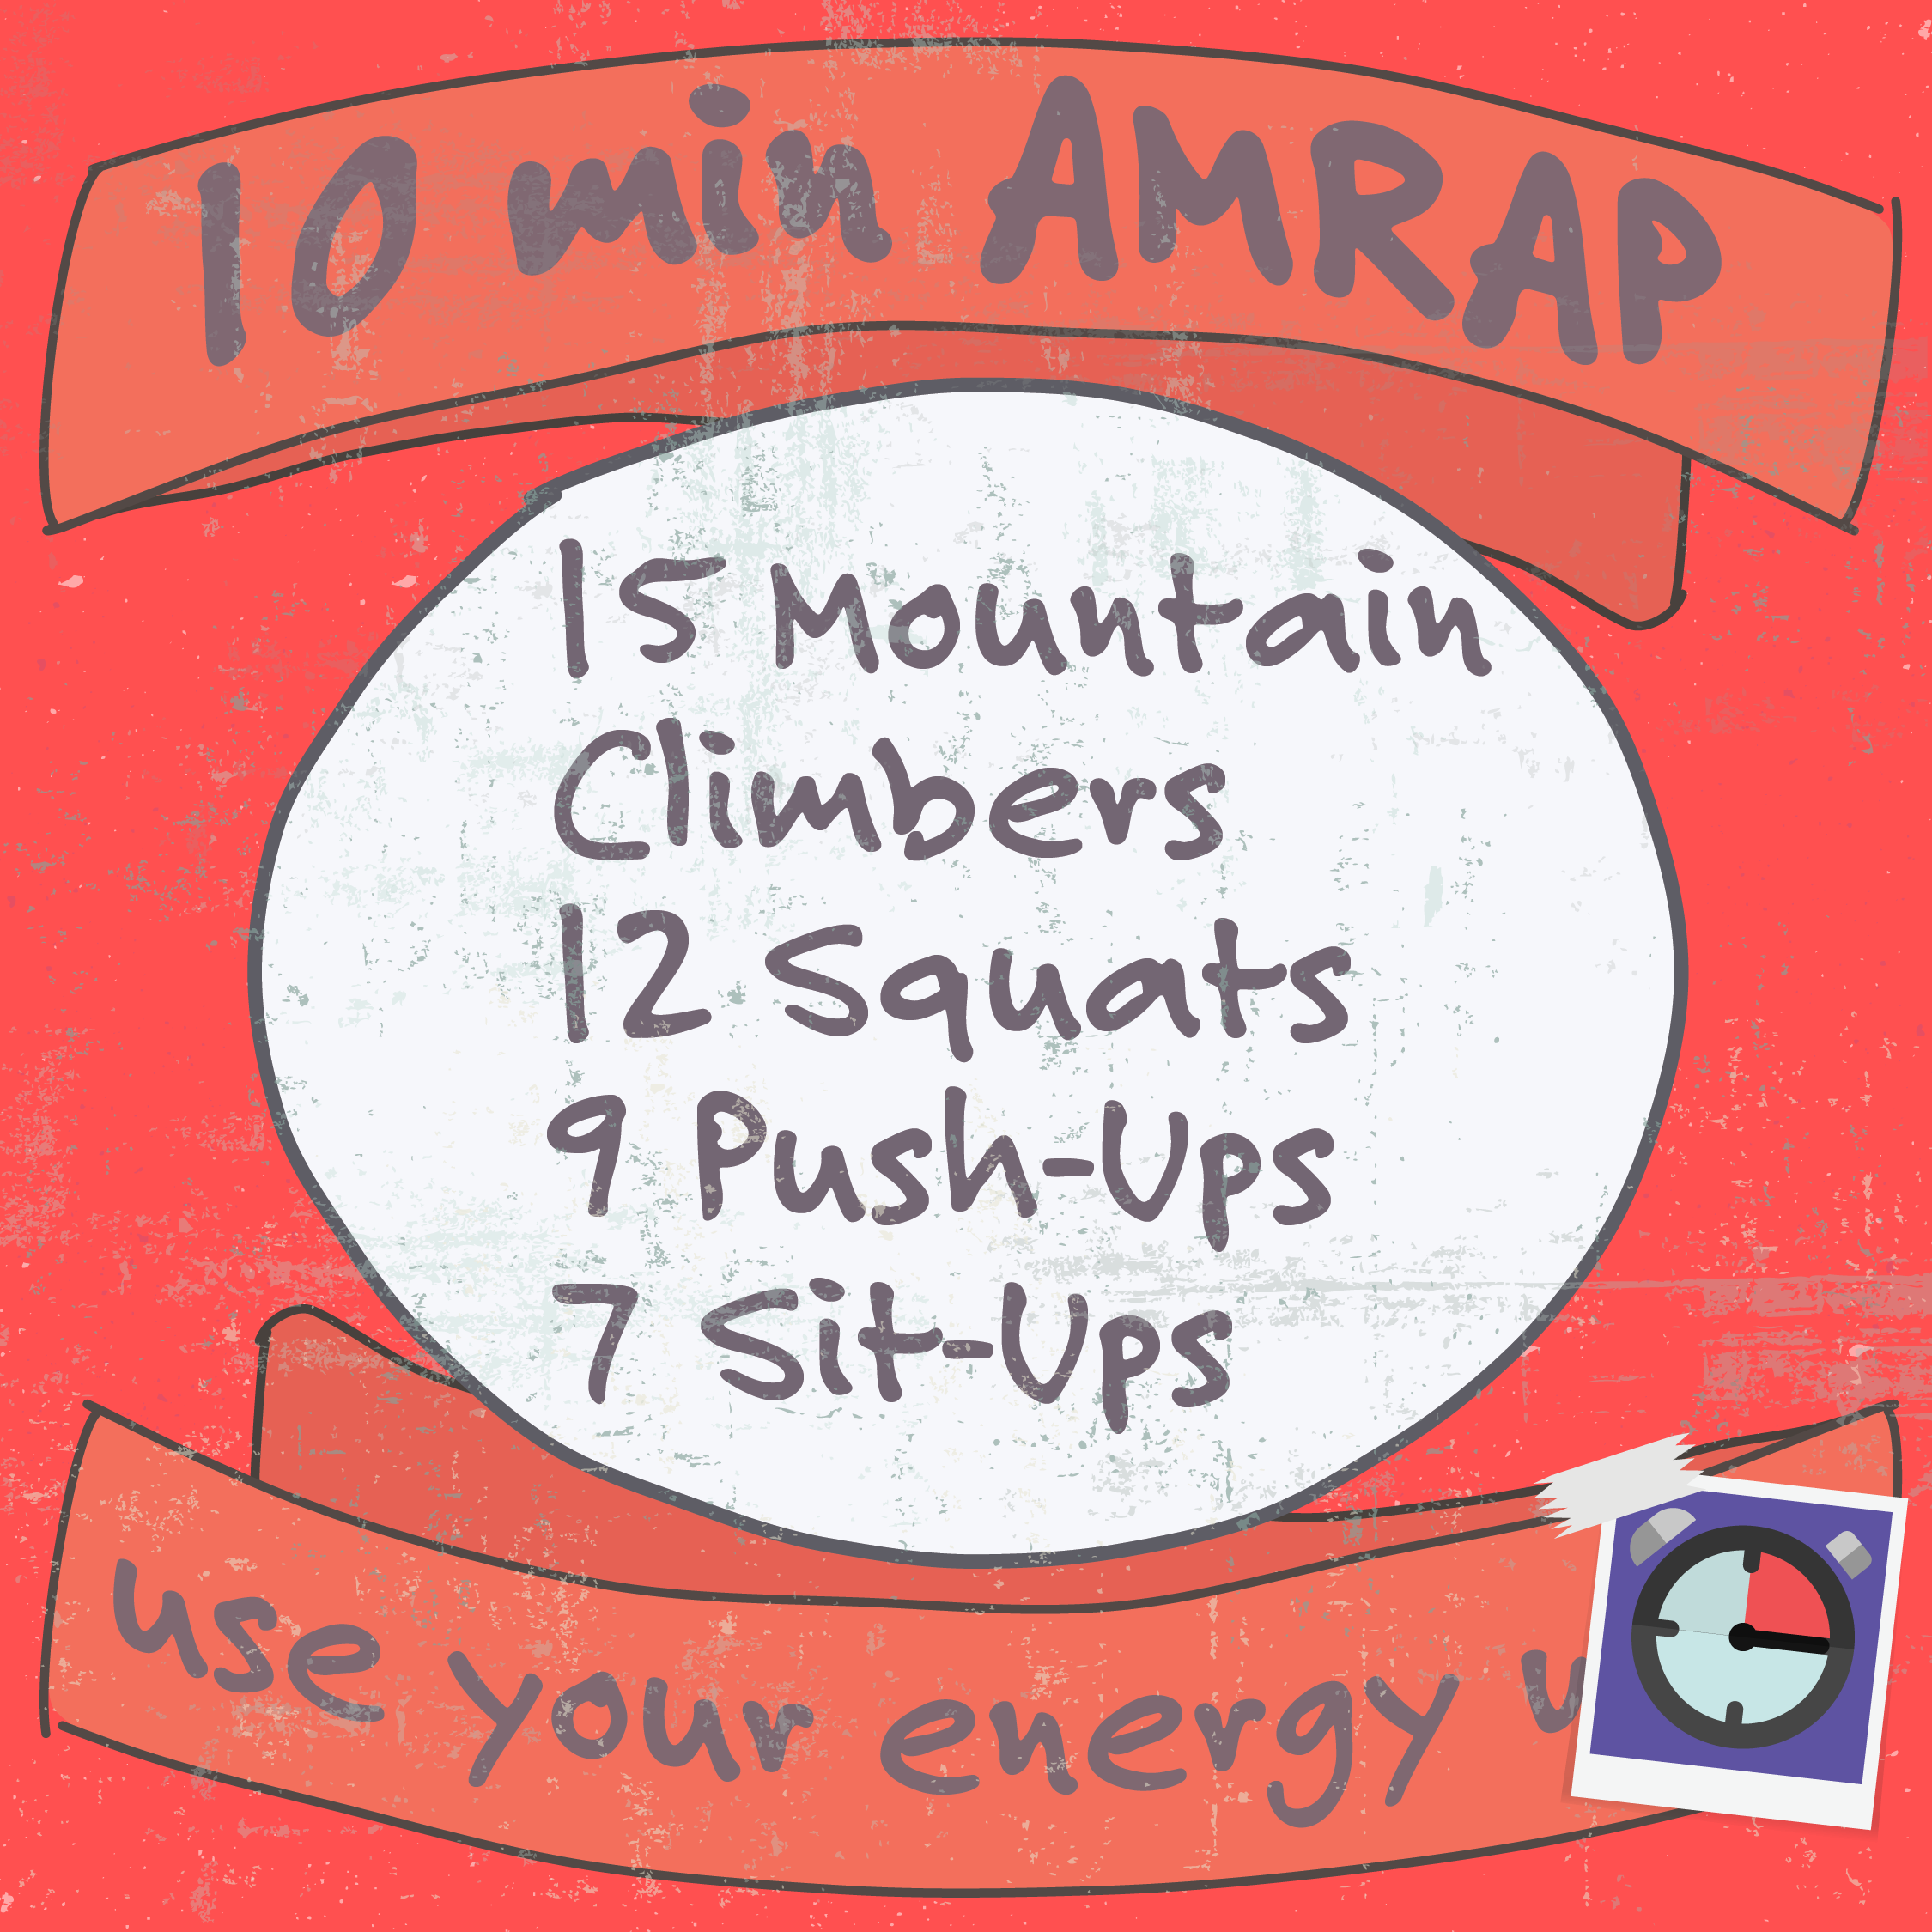 10 min AMRAP
15 Mountain
Climbers
12 Squats
9 Push-Ups
7 Sit-Ups
use your energy